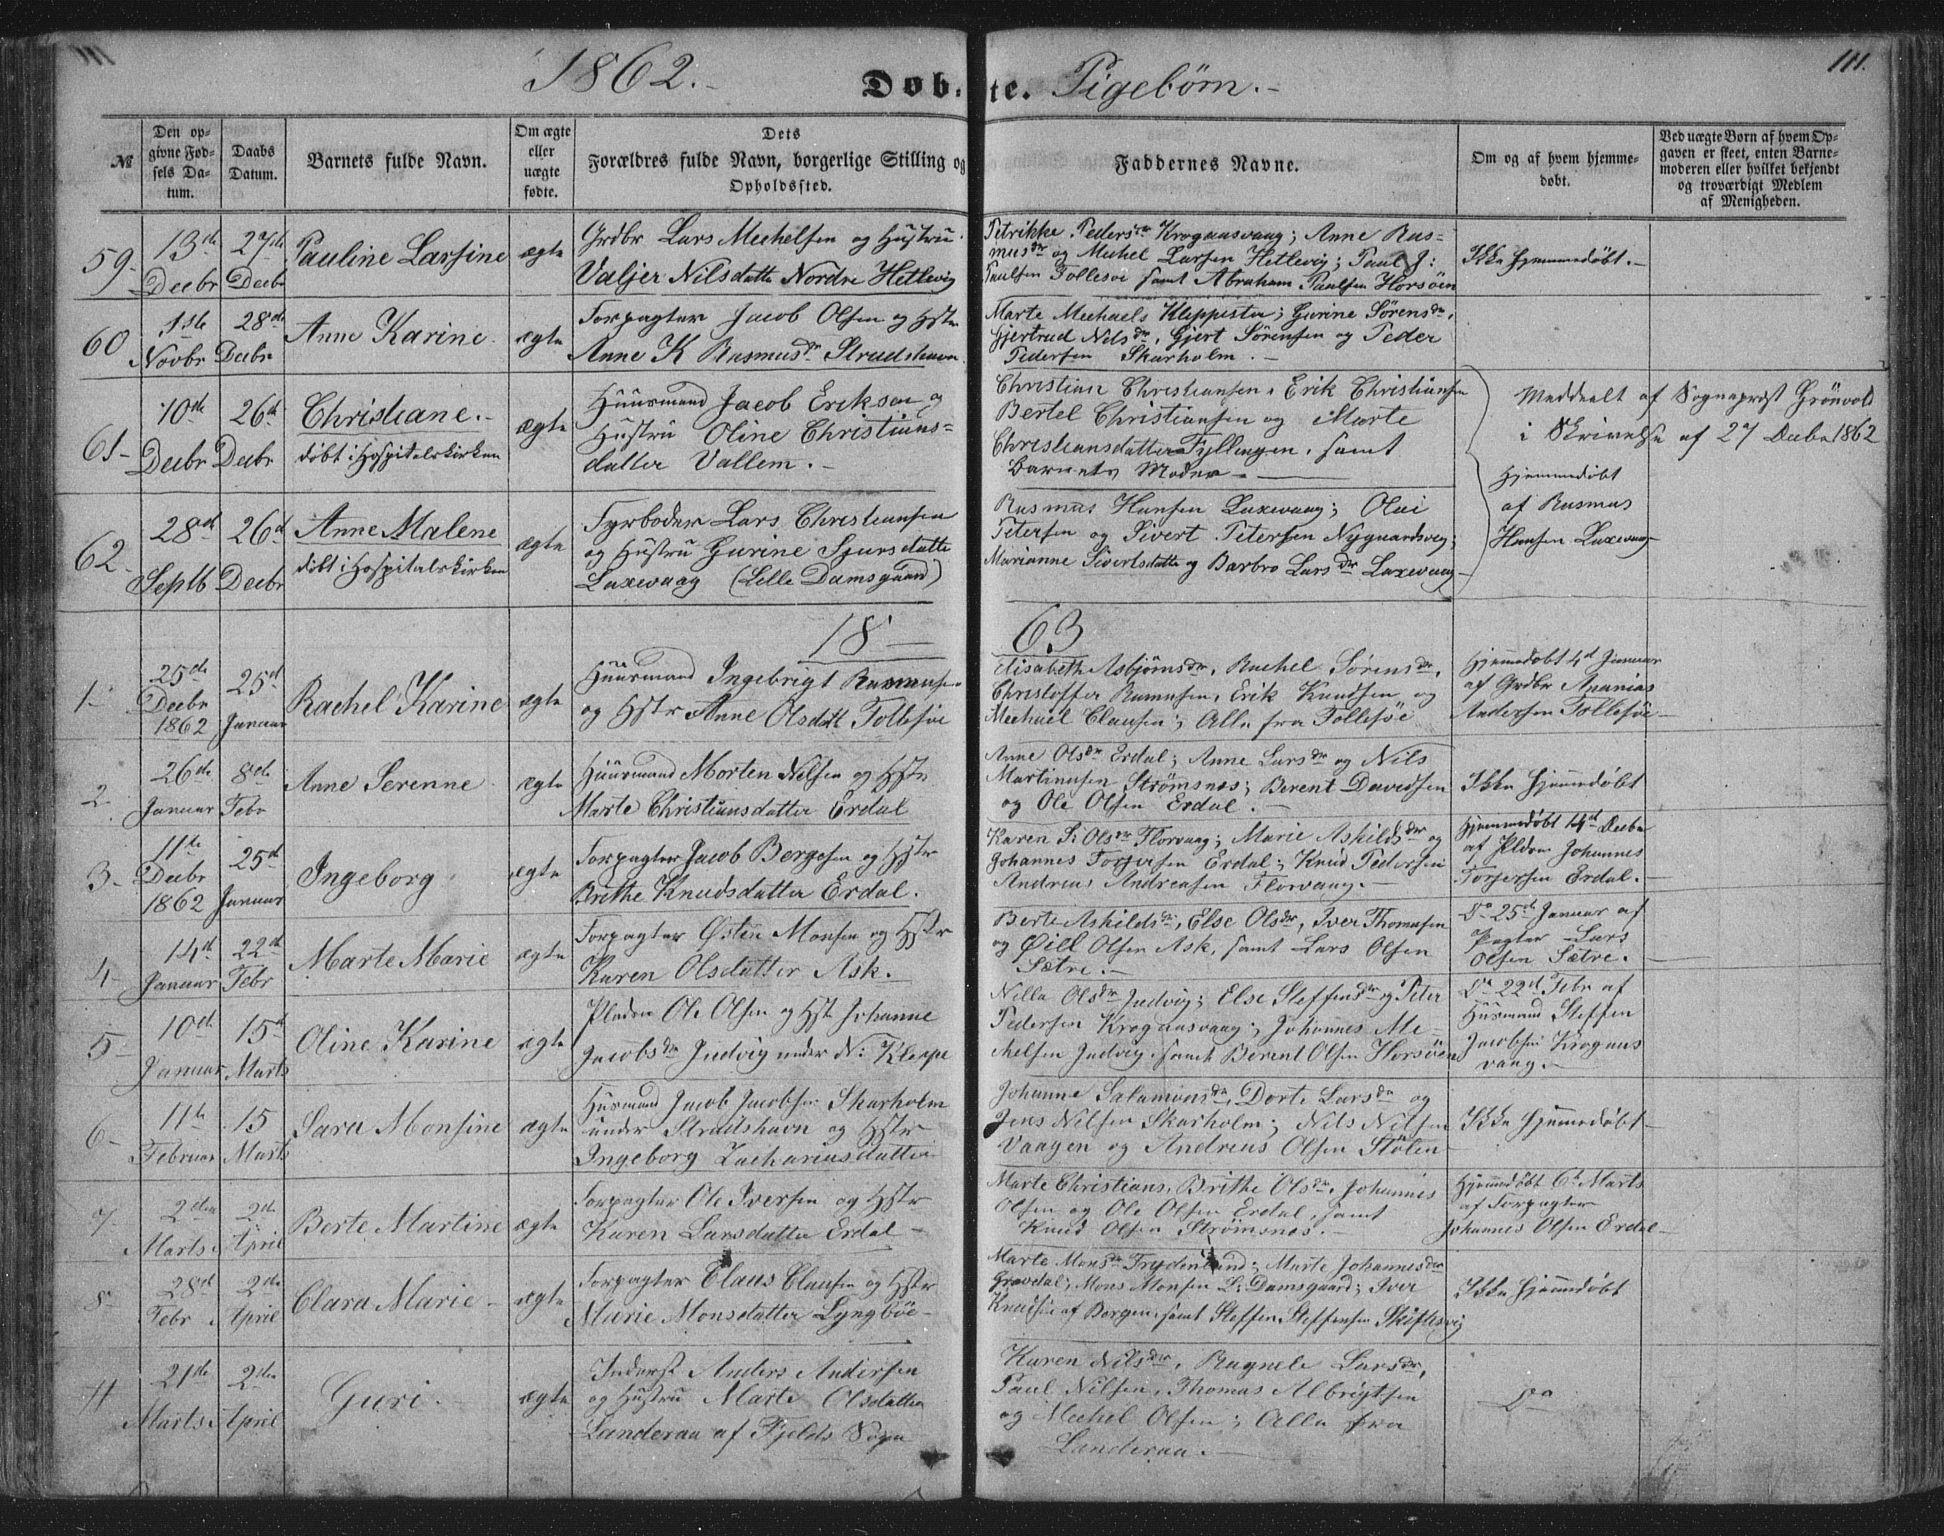 1862.
Døb-te. Pigebørn.
111.
№
Den op-
givne Fød-
sels Da-
tum.
Daabs
Datum.
Barnets fulde Navn.
Om ægte
eller
uægte
fødte.
Dets
Forældres fulde Navn, borgerlige Stilling og
Opholdssted.
Faddernes Navne.
Om og af hvem hjemme-
døbt.
Ved uægte Børn af hvem Op-
gaven er skeet, enten Barne-
moderen eller hvilket bekjendt
og troværdigt Medlem
af Menigheden.
59
13de
Decbr
27de
Decbr
Pauline Larsine
ægte
Grdbr Lars Mechelsen og Hustru
Valjer Nilsdatter Nordre Hetlevig
Petrikke Pedersdr Krogaasvaag; Anne Ras-
musdr og Mechel Larsen Hetlevig; Paul J:
Paulsen Follesøe samt Abraham Paulsen Horsøen
Ikke hjemmedøbt.
60
1ste
Novbr
28de
Decbr
Anne Karine
ægte
Forpagter Jacob Olsen og Hstr
Anne K Rasmusdr Strudshavn
Marte Mechaels Kleppestø; Gurine Sørensdr,
Gjertrud Nilsdr, Gjert Sørensen og Peder
Pedersen Skarholm.
61
10de
Decbr
26d
Decbr
Christiane.
døbt i Hospitalskirken
ægte
Huusmand Jacob Eriksen og
Hustru Oline Christians-
datter Vallem.
Christian Christiansen, Erik Christiansen
Bertel Christiansen og Marte
Christiansdatter Fyllingen, samt
Barnets Moder
Meddeelt af Sogneprest Grönvold
i Skrivelse af 27 Decbr 1862
62
28d
Septb
26d
Decbr
Anne Malene
døbt i Hospitalskirken
ægte
Fyrbøder Lars Christiansen
og Hustru Gurine Sjursdatter
Laxevaag (Lille Damsgaard)
Rasmus Hansen Laxevaag; Olai
Petersen og Sivert Petersen Nygaardsvey;
Marianne Sivertsdatter og Barbro Larsdr Laxevaag
Hjemmedøbt
af Rasmus
Hansen Laxevaag
18
63
1
25de
Decbr
1862
25d
Januar
Rachel Karine
ægte
Huusmand Ingebrigt Rasmusen
og Hstr Anne Olsdatt Follesøe
Elisabeth Asbjørnsdr, Rachel Sørensdr,
Christoffer Rasmusen, Erik Knudsen og
Mechael Clausen; Alle fra Follesøe
Hjemmedøbt 4d Januar
af Grdbr Ananias
Andersen Follesøe
2
26de
Januar
8de
Febr
Anne Serenne
ægte
Huusmand Morten Nilsen og Hstr
Marte Christiansdatter Erdal
Anne Olsdr Erdal; Anne Larsdr og Nils
Martinusen Strømsnes; Berent Davidsen
og Ole Olsen Erdal.
Ikke hjemmedøbt
3
11te
Decbr
1862
25d
Januar
Ingeborg
ægte
Forpagter Jacob Bergesen og Hstr
Brithe Knudsdatter Erdal.
Karen S: Olsdr Florvaag; Marie Askildsdr og
Johannes Torgersen Erdal; Knud Pedersen
Andreas Andreasen Florvaag.
Hjemmedøbt 14d Decbr
af Johannes
Torgersen Erdal.
4
14d
Januar
22d
Febr
Marte Marie
ægte
Forpagter Østen Monsen og Hstr
Karen Olsdatter Ask.
Berte Askildsdr, Else Olsdr, Iver Thomasen
og Olsen Ask, samt Lars Olsen
Sætre.
Do 25d Januar af
Pagter Lars
Olsen Sætre.
5
10d
Januar
15d
Marts
Oline Karine
ægte
Pladsm Ole Olsen og Hst Johanne
Jacobsdr Judvig under N: Kleppe
Nille Olsdr Judvig; Else Steffensdr og Peter
Pedersen Krogaasvaag; Johannes Me-
chelsen Judvig, samt Berent Olsen Horsøen
Do 22d Febr af
Husmand Steffen
Jacobsen Krogaas
vaag.
6
11te
Februar
15
Marts
Sara Monsine
ægte
Husmand Jacob Jacobsen Skarholm
under Strudshavn og Hstr
Ingeborg Zachariasdatter
Johanne Salamonsdr, Dorte Larsdr og
Jens Nilsen Skarholm; Nils Nilsen
Vaagen og Andreas Olsen Stølen
Ikke hjemmedøbt
7
2den
Marts
2de
April
Berte Martine
ægte
Forpagter Ole Iversen og Hstr
Karen Larsdatter Erdal
Marte Christians, Brithe Olsdr, Johannes
Olsen og Ole Olsen Erdal, samt
Knud Olsen Strømsnes.
Hjemmedøbt 6d Marts
af Forpagter
Johannes Olsen Erdal
8
28d
Febr
2de
April
Clara Marie
ægte
Forpagter Claus Clausen og Hstr
Marie Monsdatter Lyngbøe
Marte Monsdr Frydenlund; Marte Johannesdr
Gravdal; Mons Monsen L: Damsgaard; Iver
Knudsen af Bergen, samt Steffen Steffensen Skiftesvig
Ikke hjemmedøbt
21de
Marts
2den
April
Guri.
ægte
Inderst Anders Andersen
og Hustru Marte Olsdatter
Landeraa af Fjelds Sogn
Karen Nilsdr, Ragnele Larsdr,
Paul Nilsen, Thomas Albrigtsen
og Mechel Olsen; Alle fra
Landeraa.
Do